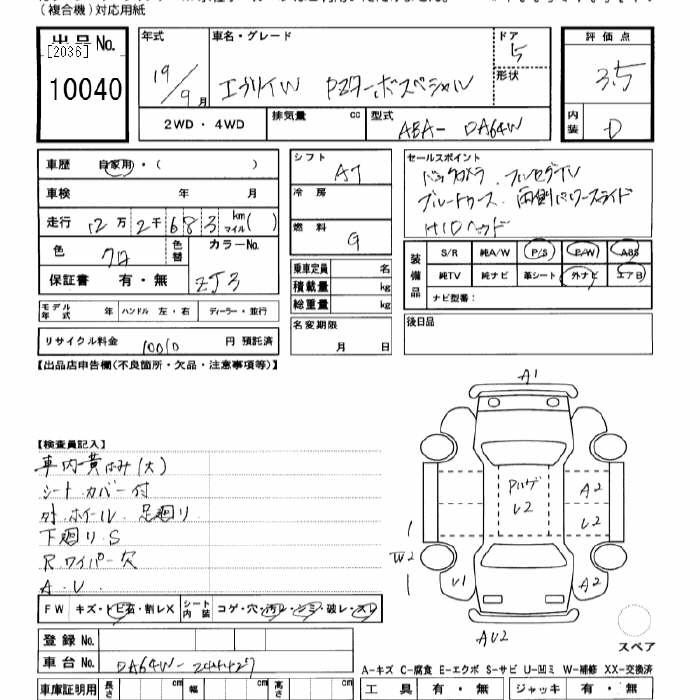 (複合機)対応用紙
出品No.
[2036]
10040
年式
19/9月
車名・グレード
エブリイW PZターボスペシャル
ドア
5
形状
評価点
3.5
内装
D
2WD・4WD
排気量 cc
型式
ABA- DA64W
車歴 自家用・( )
車検 年 月
走行 12万2千683 kmマイル( )
色 クロ
色替
カラーNo.
ZJ3
保証書 有・無
モデル年式 年 ハンドル 左・右 ディーラー・並行
リサイクル料金 10010 円 預託済
シフト AT
冷房
燃料 G
乗車定員 名
積載量 kg
総重量 kg
名変期限
月 日
セールスポイント
バックカメラ フルセグTV
ブルートゥース 両側パワースライド
HIDヘッド
装備品
S/R 純A/W P/S P/W ABS
純TV 純ナビ 革シート 外ナビ エアB
ナビ型番:
後日品
【出品店申告欄(不良箇所・欠品・注意事項等)】
【検査員記入】
車内黄ばみ(大)
シートカバー付
外 ホイール 足廻り
下廻り S
Rワイパー欠
A.U
FW キズ・トビ石・割レX シート内装 コゲ・穴・汚レ・シミ・破レ・スレ
登録No.
車台No. DA64W-
車庫証明用 長さ cm 幅 cm 高さ cm
A1
Pハゲ
U2
A2
U2
W2
U1
A2
AU2
スペア
A-キズ C-腐食 E-エクボ S-サビ U-凹ミ W-補修 XX-交換済
工具 有・無 ジャッキ 有・無